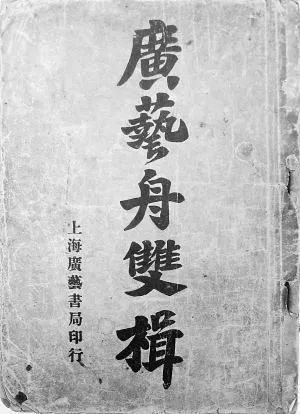 廣藝舟雙楫
上海廣藝書局印行